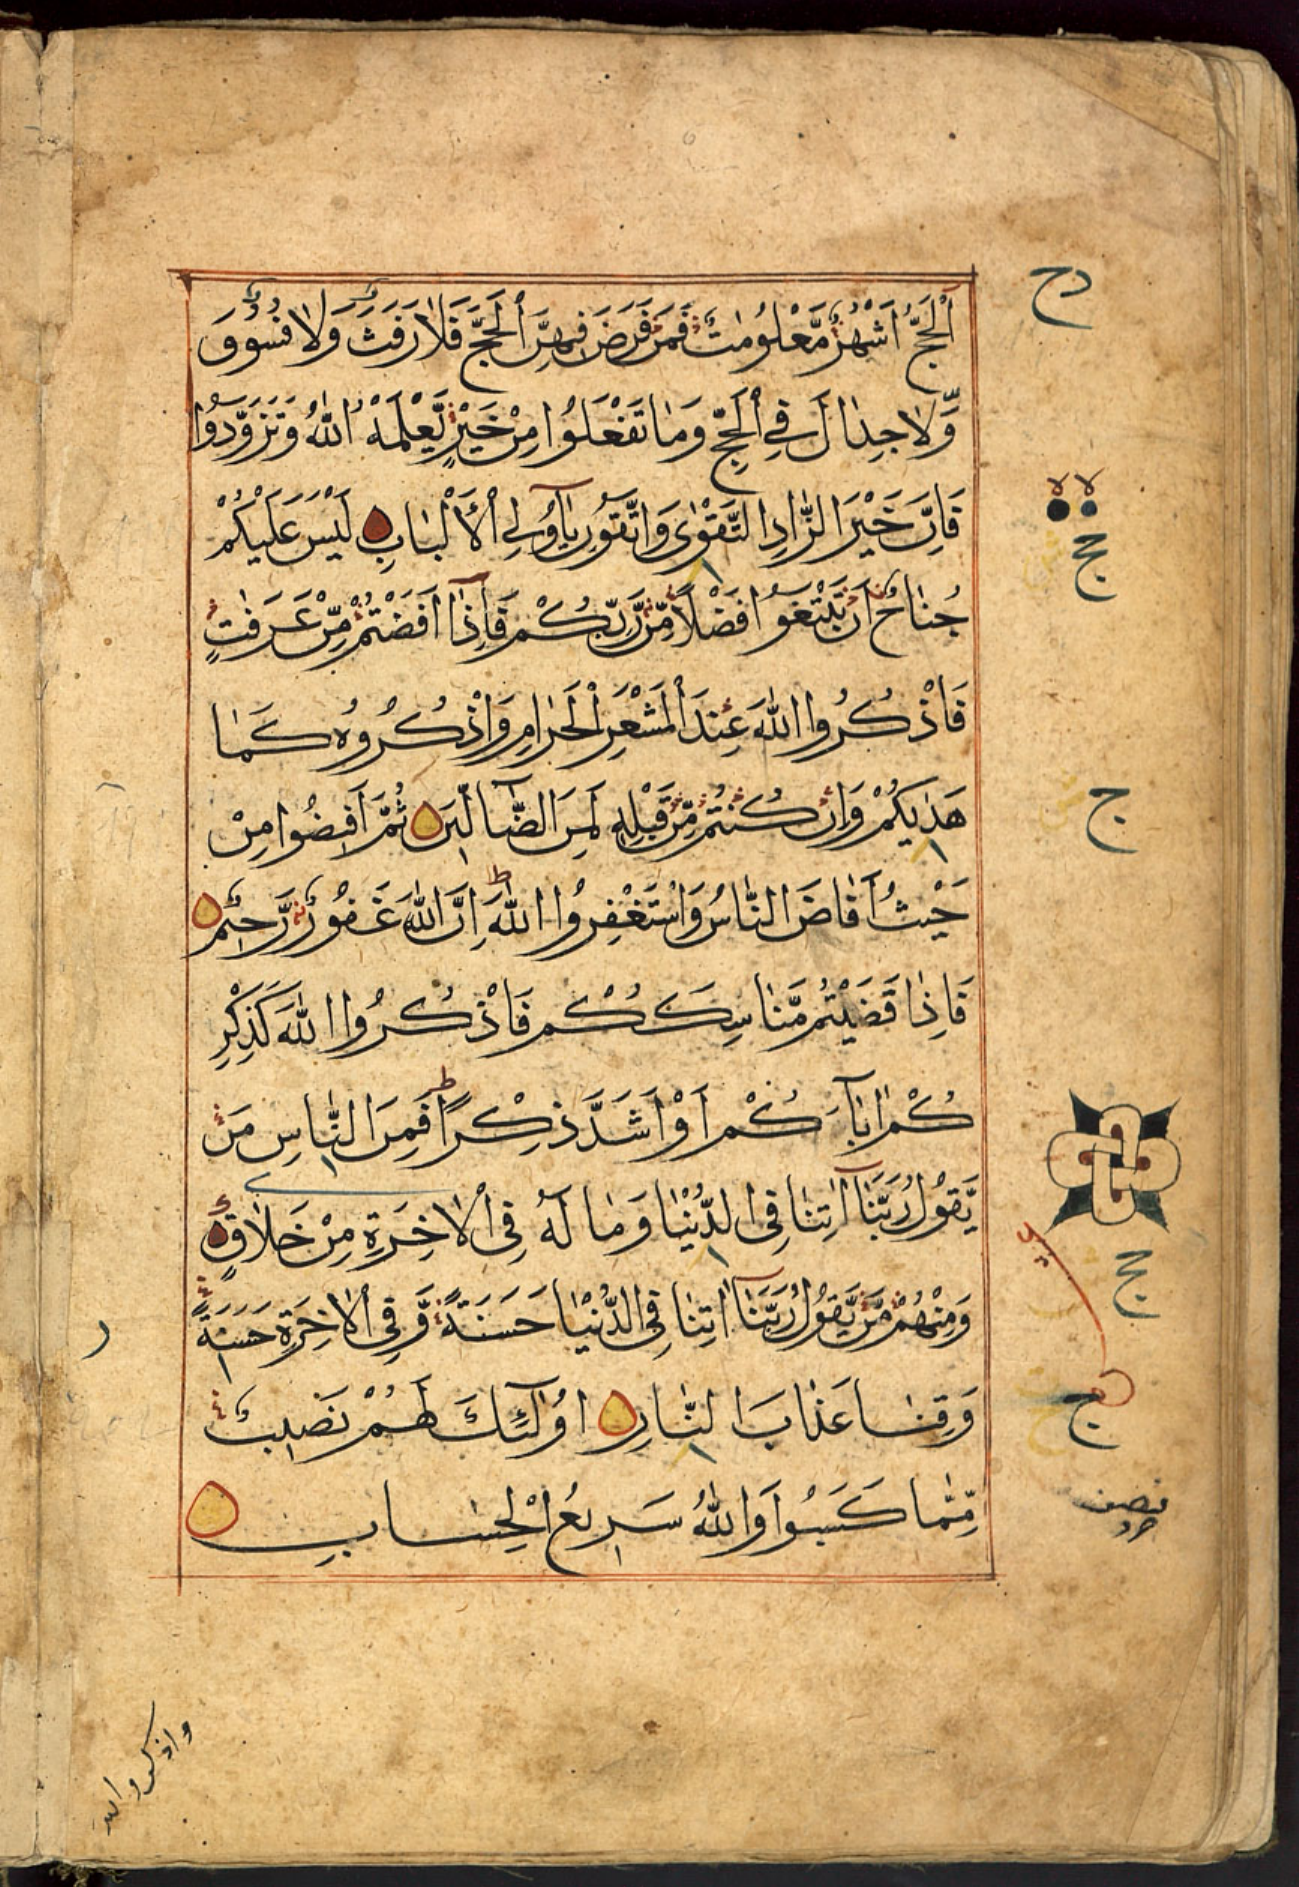 اَلْحَجُّ اَشْهُرٌ مَّعْلُومٰتٌ فَمَنْ فَرَضَ فِيهِنَّ الْحَجَّ فَلَا رَفَثَ وَلَا فُسُوقَ
وَّلَا جِدَالَ فِي الْحَجِّ وَمَا تَفْعَلُوْا مِنْ خَيْرٍ يَّعْلَمْهُ اللّٰهُ وَتَزَوَّدُوا
فَاِنَّ خَيْرَ الزَّادِ التَّقْوٰى وَاتَّقُوْنِ يٰٓاُولِى الْاَلْبَابِ لَيْسَ عَلَيْكُمْ
جُنَاحٌ اَنْ تَبْتَغُوْا فَضْلًا مِّنْ رَّبِّكُمْ فَاِذَا اَفَضْتُمْ مِّنْ عَرَفٰتٍ
فَاذْكُرُوا اللّٰهَ عِنْدَ الْمَشْعَرِ الْحَرَامِ وَاذْكُرُوهُ كَمَا
هَدٰيكُمْ وَاِنْ كُنْتُمْ مِّنْ قَبْلِهٖ لَمِنَ الضَّآلِّيْنَ ثُمَّ اَفِيْضُوا مِنْ
حَيْثُ اَفَاضَ النَّاسُ وَاسْتَغْفِرُوا اللّٰهَ ط اِنَّ اللّٰهَ غَفُوْرٌ رَّحِيْمٌ
فَاِذَا قَضَيْتُمْ مَّنَاسِكَكُمْ فَاذْكُرُوا اللّٰهَ كَذِكْرِ
كُمْ اٰبَآءَكُمْ اَوْ اَشَدَّ ذِكْرًا ط فَمِنَ النَّاسِ مَنْ
يَّقُوْلُ رَبَّنَآ اٰتِنَا فِى الدُّنْيَا وَمَا لَهٗ فِى الْاٰخِرَةِ مِنْ خَلَاقٍ
وَمِنْهُمْ مَّنْ يَّقُوْلُ رَبَّنَآ اٰتِنَا فِى الدُّنْيَا حَسَنَةً وَّفِى الْاٰخِرَةِ حَسَنَةً
وَّقِنَا عَذَابَ النَّارِ اُولٰٓئِكَ لَهُمْ نَصِيْبٌ
مِّمَّا كَسَبُوْا وَاللّٰهُ سَرِيْعُ الْحِسَابِ
لا لا
ج
ج
ج
نصف
واذكروا الله